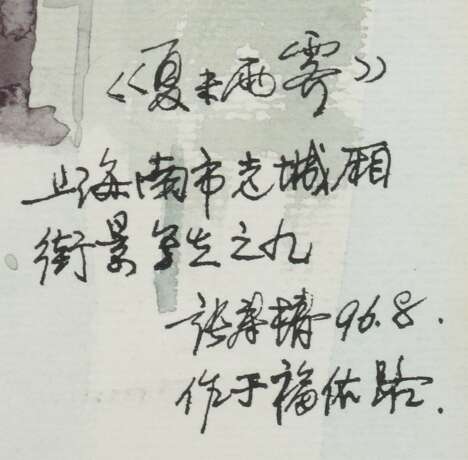 《夏末雨霁》
上海南市老城厢
街景写生之九
张 96.8.
作于福佑路.